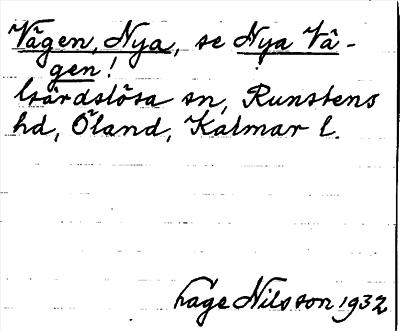 Vägen, Nya, se Nya Vä-
gen!
Gärdslösa sn, Runstens
hd, Öland, Kalmar l.
Hage Nilsson 1932